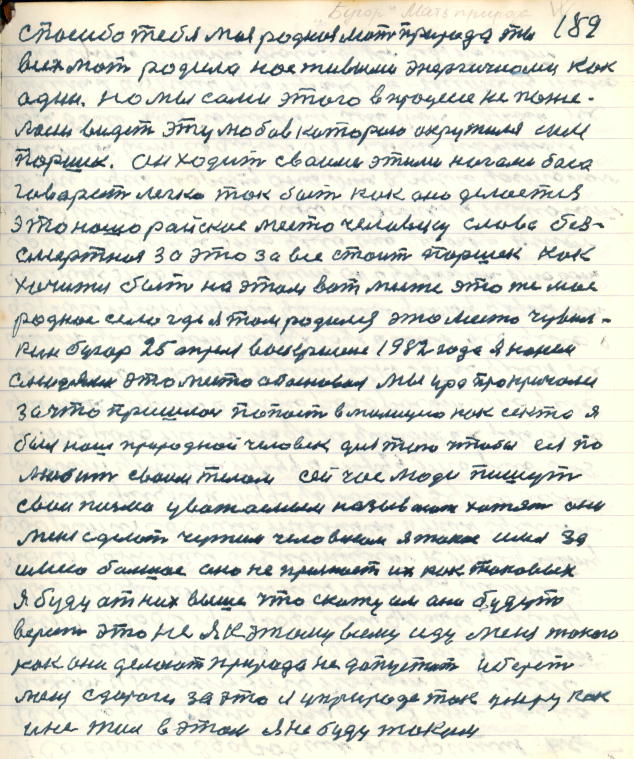 "Бугор" Мать природа
189
Спосибо тебя моя родная мать природа ты
всех мат родила нас живыми энергичному как
один. но мы сами этого в процесе не поже-
лали видет эту любов которою окружил сам
Паршек. Он ходит своими этими ногами баса
говорит легко так быт как оно делается
это нашо райское место человеку слава без-
смертная за это за все стоит Паршек как
хочиш быт на этом вот мыже это же мае
родное село где я там родился это место чувил-
кин бугар 25 апреля воскресене 1982 года я
это место обосновал мы
зачто пришлос попаст в милицию как секта я
был наш природной человек для того чтобы ея по
любит своим телом сей час люди пишут
свои писма уважаемым называют хотят они
меня сделат чужим человеком я такое имя за
имею болшое оно не их как таковых
я буду от них выше что скажу им они будуто
верит это не я к этому всему иду меня такого
как они делают природа не допустит уберет
меня сдороги за это и у природе так умру как
и не жил в этом я не буду таким